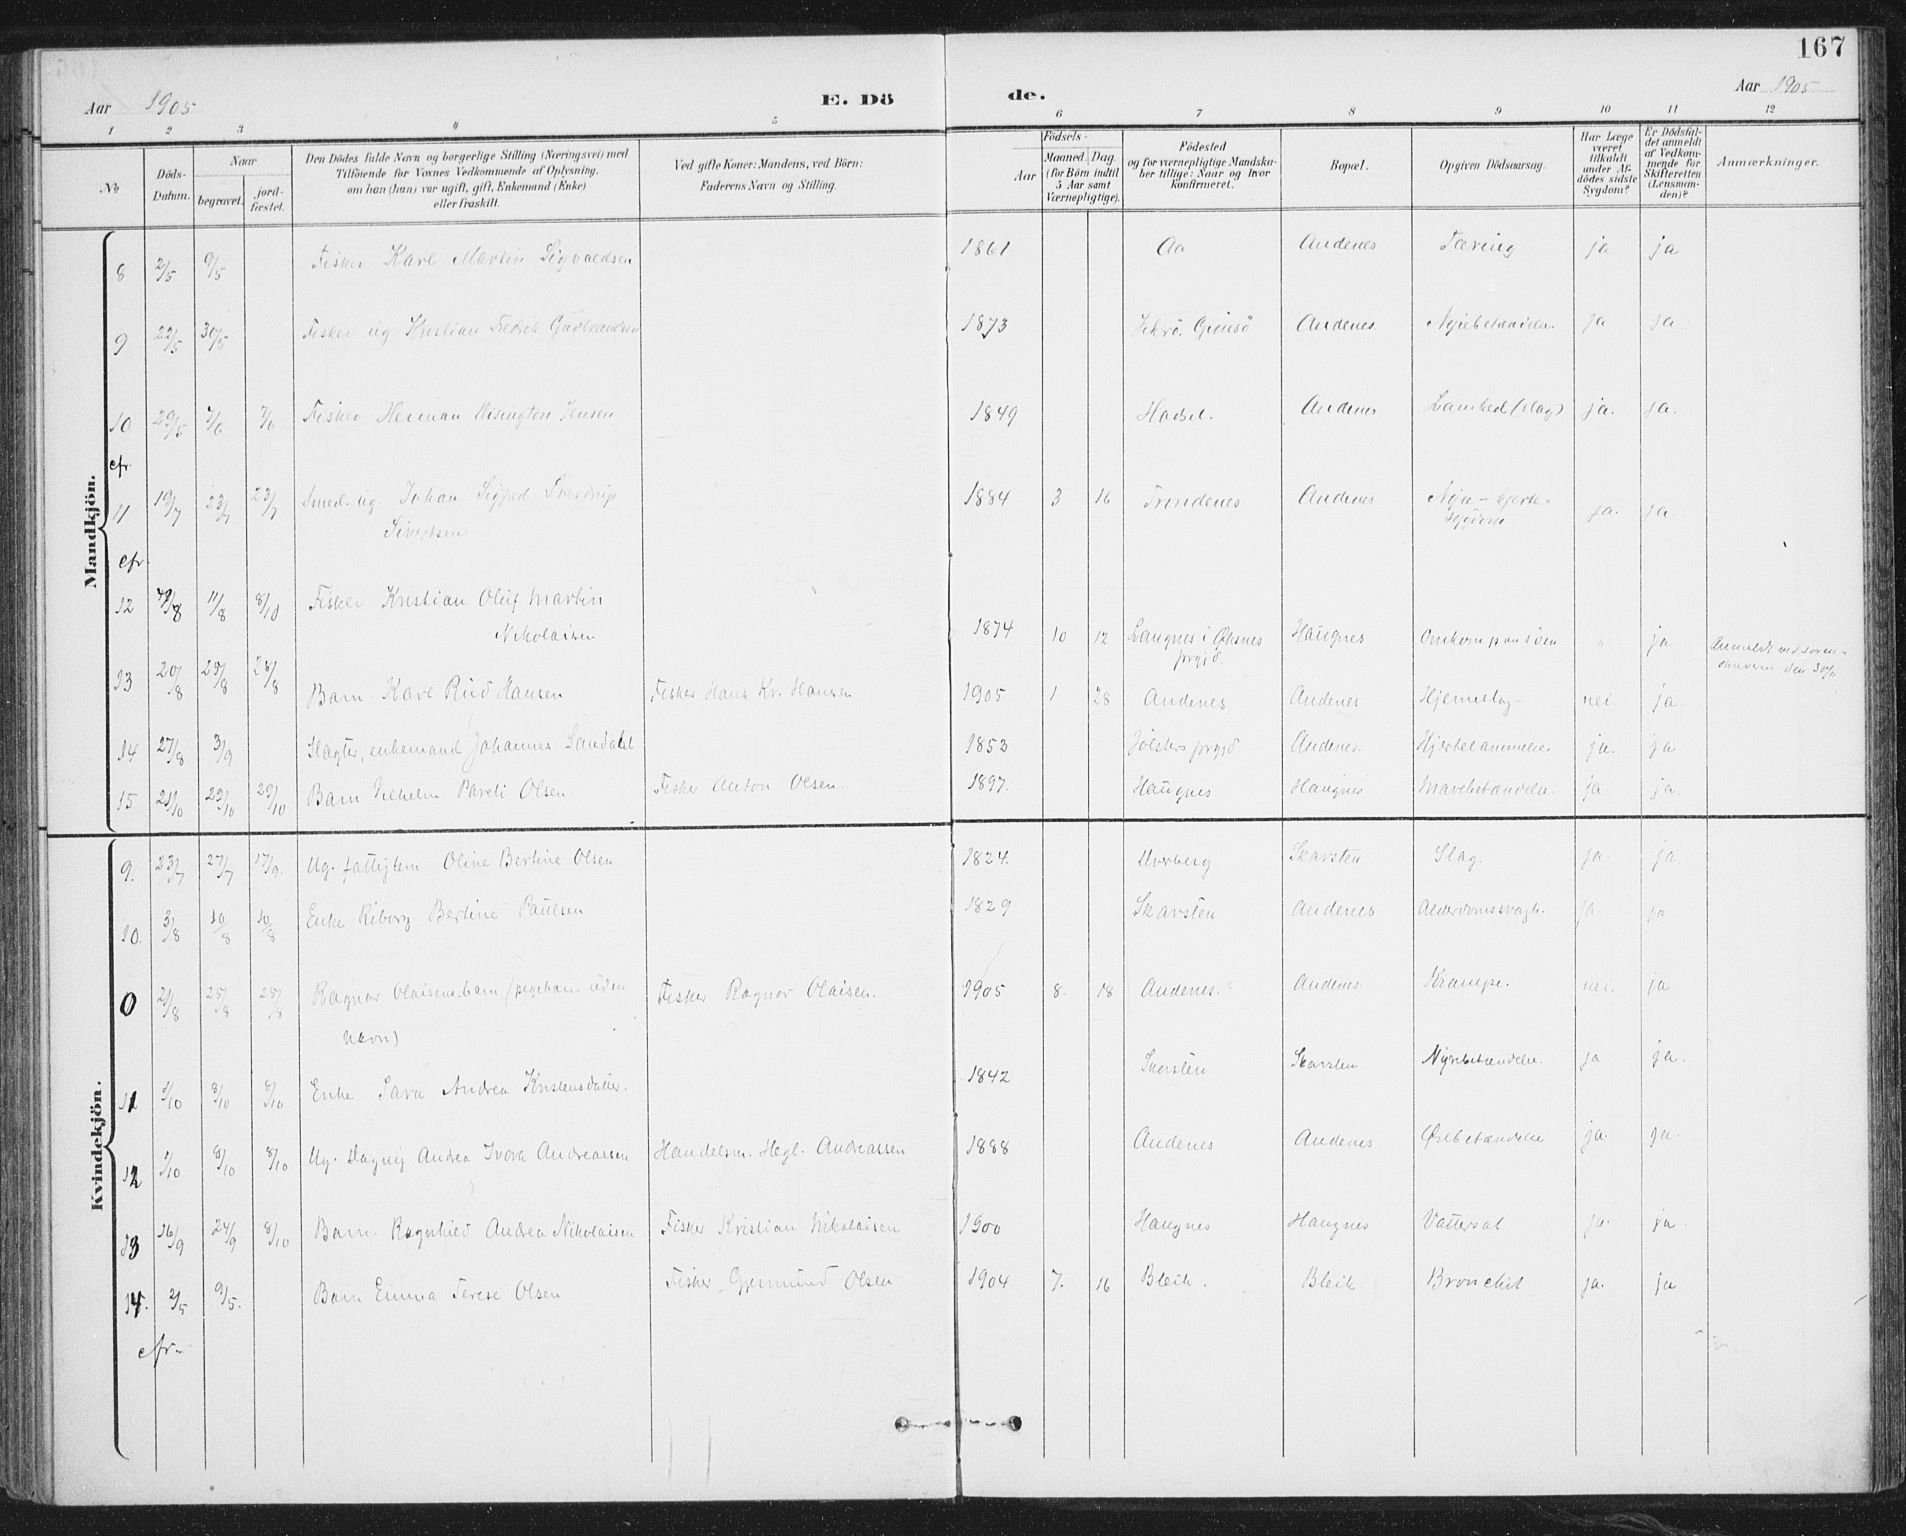 167
Aar 1905
E. Döde.
Aar 1905
1 2 3 4 5 6 7 8 9 10 11 12
No
Döds-Datum.
Naar
begravet.
jord-fæstet.
Den Dödes fulde Navn og borgerlige Stilling (Næringsvei) med
Tilföiende for Voxnes Vedkommende af Oplysning,
om han (hun) var ugift, gift, Enkemand (Enke)
eller fraskilt.
Ved gifte Koner: Mandens, ved Börn:
Faderens Navn og Stilling.
Födsels-
Aar
Maaned. Dag.
(for Börn indtil
5 Aar samt
Værnepligtige).
Födested
og for værnepligtige Mandska-
ber tillige: Naar og hvor
konfirmeret.
Bopæl.
Opgiven Dödsaarsag.
Har Læge
været
tilkaldt
under Af-
dödes sidste
Sygdom?
Er Dödsfal-
det anmeldt
af Vedkom-
mende for
Skifteretten
(Lensman-
den)?
Anmærkninger.
Mandkjön.
8 2/5 9/5 Fisker Karl Martin Sigvaldsen 1861 Aa Andenes Tæring ja ja
9 22/5 30/5 Fisker ug. Kristian Fedrik Gudbrandsen 1873 Gimsö Andenes ja ja.
10 29/5 7/6 7/6 Fisker Herman Jensen 1849 Hadsel. Andenes Lamhed (slag) ja. ja.
cfr.
11 19/7 23/7 23/7 Smed. ug. Johan Sverdrup
Sivertsen 1884 3 16 Trondenes Andenes ja. ja.
cfr.
12 11/8 8/10 Fisker Kristian Oluf Martin
Nikolaisen 1874 10 12 Langnes i Øksnes
prgjd. Haugnes Omkom paa sjöen " ja
13 20/8 25/8 28/8 Barn Rud Hansen Fisker Hans Kr. Hansen 1905 1 28 Andenes Andenes Hjerneslag nei. ja.
14 27/8 3/9 Slagter, enkemand Johannes Sandahl 1853 Jölsters prgjd. Andenes. Hjertelammelse ja. ja
15 21/10 29/10 29/10 Barn Vilhelm Pareli Olsen. Fisker Anton Olsen. 1897. Haugnes Haugnes Mavebetændelse. ja. ja.
Kvindekjön.
9. 23/7 27/7 17/9. Ug. fattiglem Oline Bertine Olsen 1824. Skarsten Slag. ja. ja
10. 3/8 10/8 10/8 Enke Riborg Bertine Paulsen 1829 Skarsten Andenes Alderdomssvagh. ja ja
0 21/8 25/8 25/8 Ragnar Olaisens barn (pigebarn uden
navn) Fisker Ragnar Olaisen. 1905 8. 18 Andenes. Andenes. Krampe. nei. ja
11 8/10 8/10 Enke Sara Andrea Kristensdatter. 1842 Skarsten Skarsten Nyrebetændelse. ja ja.
12 8/10 8/10 Ug. Dagny Andrea Andreassen Handelsm. Hegl. Andreassen 1888 Andenes Andenes Ørebetændelse ja. ja.
13 16/9 24/9 8/10 Barn. Ragnhild Andrea Nikolaisen Fisker Kristian Nikolaisen 1900 Haugnes Haugnes Vattersot ja. ja
14. 2/5 9/5. Barn Emma Terese Olsen Fisker Gjermund Olsen 1904 7. 16 Bleik. Bleik. Bronchit ja. ja
cfr.